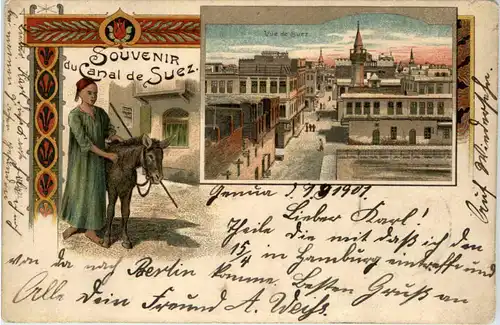 SOUVENIR
du Canal de Suez.
Vue de Suez
Genua 1901
Lieber Karl!
Theile dir mit daß ich den
15/4 in Hamburg eintreffe und
von da nach Berlin komme. Besten Gruß an
Alle Dein Freund A. Weiss.
Auf Wiedersehn